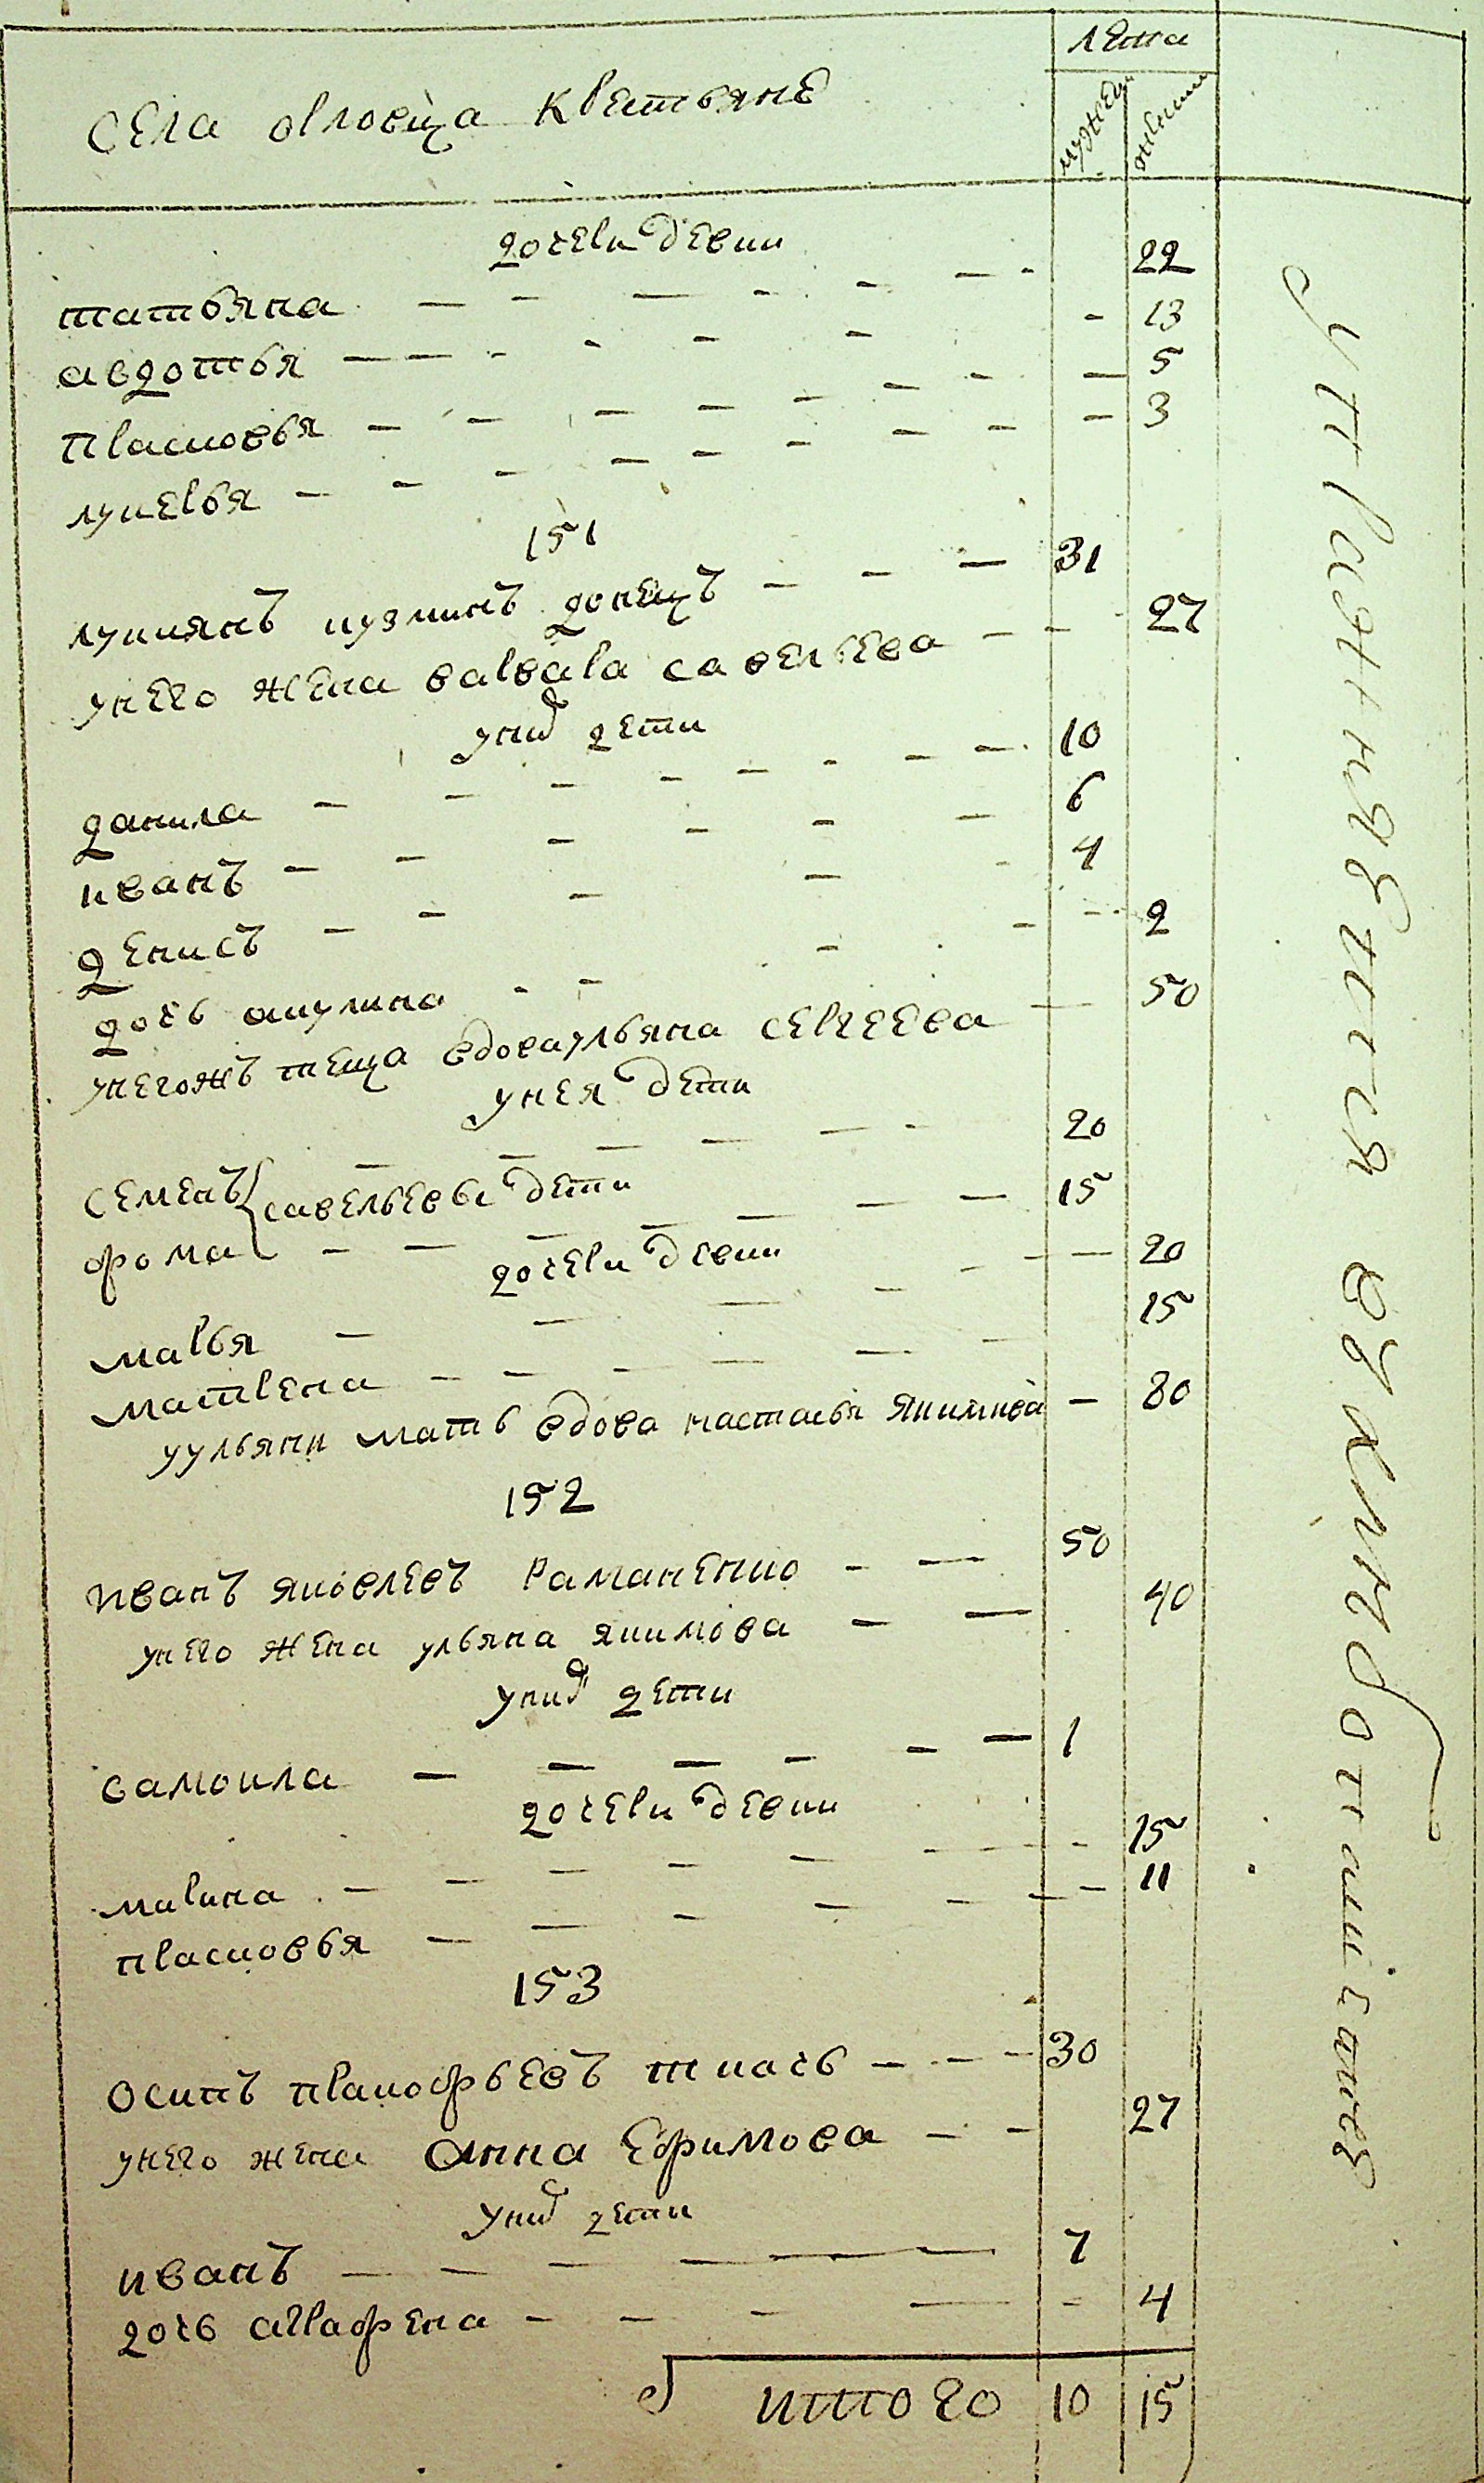 Села
лета
мужеска
дочери девки
татьяна 22
авдотья 13
прасковья 5
лукерья 3
151
лукиянъ кузминъ донецъ 31
унего жена варвара савельева 27
уних дети
данила 10
иванъ 6
денисъ 4
дочь акулина 2
унегожъ теща вдова ульяна сергеева 50
унея дети
семенъ 20
савельевы дети
фома 15
дочери девки
марья 20
матрена 15
уульяни мать вдова настасья якимова 80
152
иванъ яковлевъ раманенко 50
унего жена ульяна якимова 40
уних дети
самоила 1
дочери девки
марина 15
прасковья 11
153
осипъ пракофьевъ ткачь 30
унего жена анна ефимова 27
уних дети
иванъ 7
дочь аграфена 4
итого 10 15
упражняется в хлебопашестве